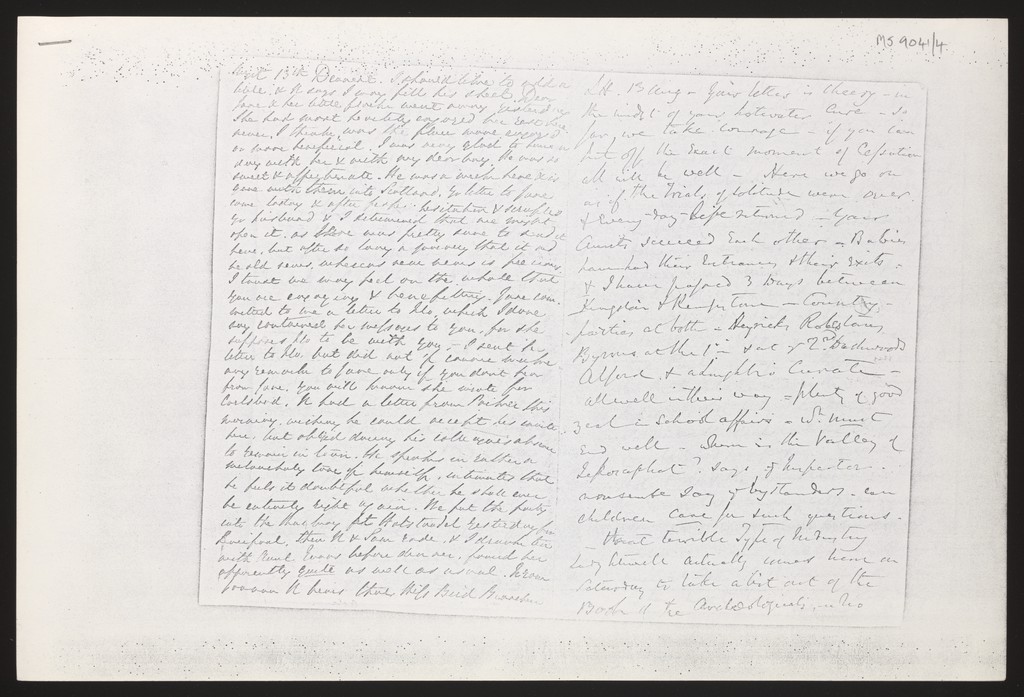 MS 9041/4
13th Dearest. I should like to
here, & H says I may fill his sheet. Dear
Jane & her little went away yesterday
She had most heartily enjoyed her
never, I think, was the place more enjoyed
or more beneficial. I was very glad to have a
day with her & with my dear boy. He was so
sweet & affectionate. He was a week here & is
gone with them into Scotland. Yr letter to Jane
came today & after some hesitation & scruples
yr husband & I determined that we might
open it, as there was pretty sure to
here, but after so long a journey that it wd
be old news, whereas new news is precious
I trust we may feel on the whole that
you are enjoying & benefitting. Jane
to me a letter to Flo, which I dare
say contained her messages to you, for she
supposes Flo to be with you. I sent the
letter to Flo, but did not of course make
any remarks to Jane only if you dont hear
from Jane, you will know she wrote for
Carlsbad. H had a letter from this
morning, wishing he could accept his invite
here, but obliged during his colleague's absence
to remain in town. He speaks in rather a
melancholy tone of himself, intimates that
he feels it doubtful whether he shall ever
be entirely right again. We put the party
into the yesterday for
Liverpool, then H & Sam rode, & I
with Aunt Evans before dinner, found her
apparently quite as well as usual.
H hears that Miss Bird
L.H. 13 Aug - Your letter is cheery - in
the midst of your hotwater cure - so
far, we take courage - if you can
hit off the exact moment of Cessation
all will be well - Here we go on
as if the Trials of solitude were over
& Every-day-Life returned - Your
Aunts succeed Each other - Babies
have had their Entrances & their Exits -
& I have passed 3 Days between
Kingston & Rempstone - Country-
parties at both - Heyricks Robertsons
Byrons at the 1st - & at ye 2nd Dashwoods
Alford, & a daughter's Curate -
all well in their way - plenty of good
zeal in School affairs - wh must
End well - Where is the Valley of
Jehosaphat? says ye Inspector.
nonsense say ye bystanders - can
children care for such questions.
- terrible Type of Industry
actually comes here on
Saturday to take a list out of the
Book of the Archaeologists, who